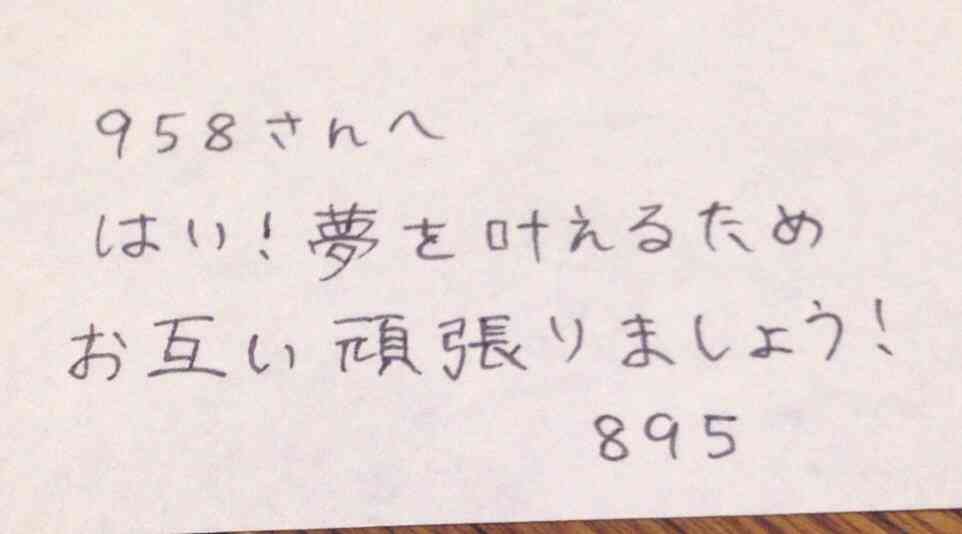 958さんへ
はい!夢を叶えるため
お互い頑張りましょう!
895